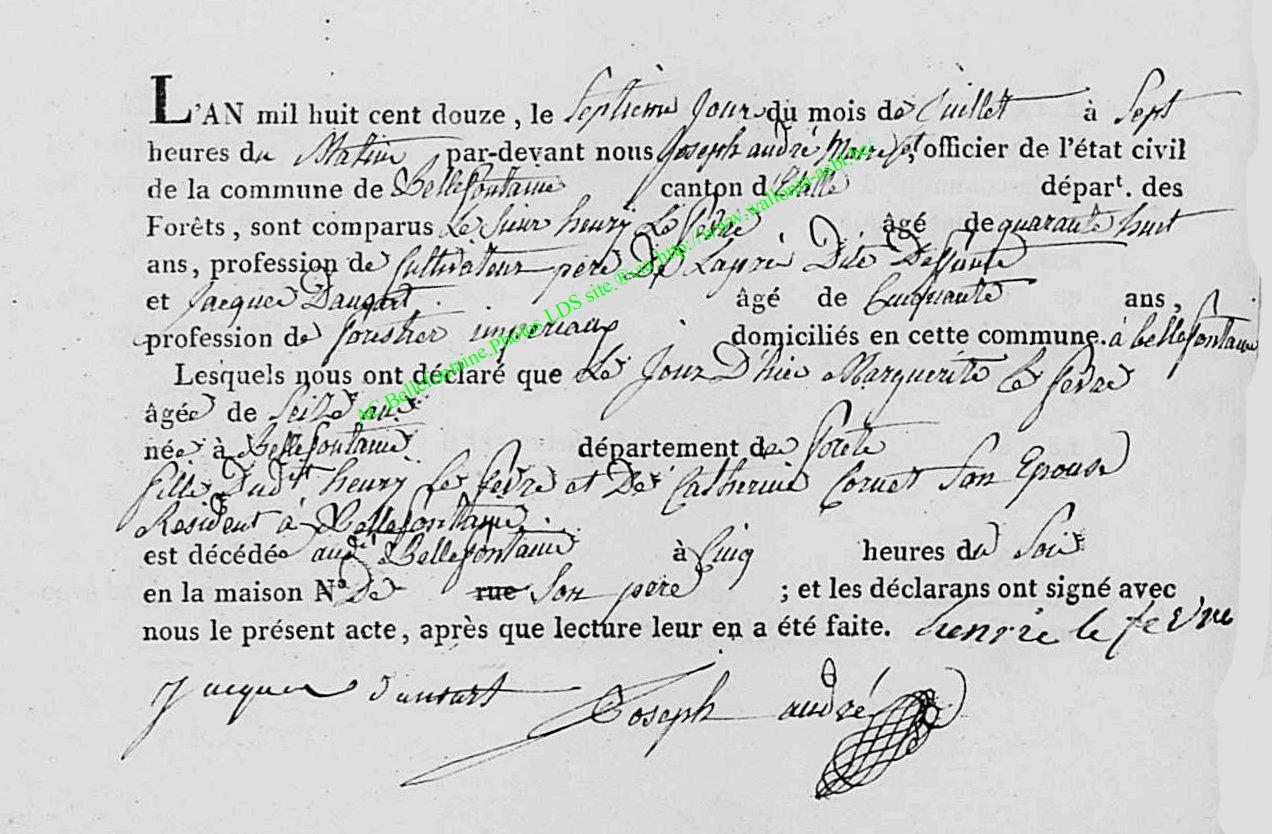 L'AN mil huit cent douze, le septieme Jour du mois de Juillet à Sept
heures du Matin par-devant nous Joseph andré Maire et officier de l'état civil
de la commune de Bellefontaine canton d'Etalle départ. des
Forêts, sont comparus Le Sieur henry Le fevre âgé de quarante huit
ans, profession de Cultivateur pere De
et Jacque Dausart âgé de Cinquante ans,
profession de forestier imperiaux domiciliés en cette commune. à bellefontaine
Lesquels nous ont déclaré que Le Jour D'hier Marguerite le fevre
âgée de Seize ans
née à Bellefontaine département de foret
fille Dudt henry Le fevre et De Catherine Cornet Son Epouse
Resident à Bellefontaine.
est décédée audit Bellefontaine à Cinq heures du Soir
en la maison No. De rue Son pere ; et les déclarans ont signé avec
nous le présent acte, après que lecture leur en a été faite. henrie le fevre
Jacque dausart Joseph andré
AC Bellefontaine.Photos LDS site.®via http://www.wallonia-asbl.be/